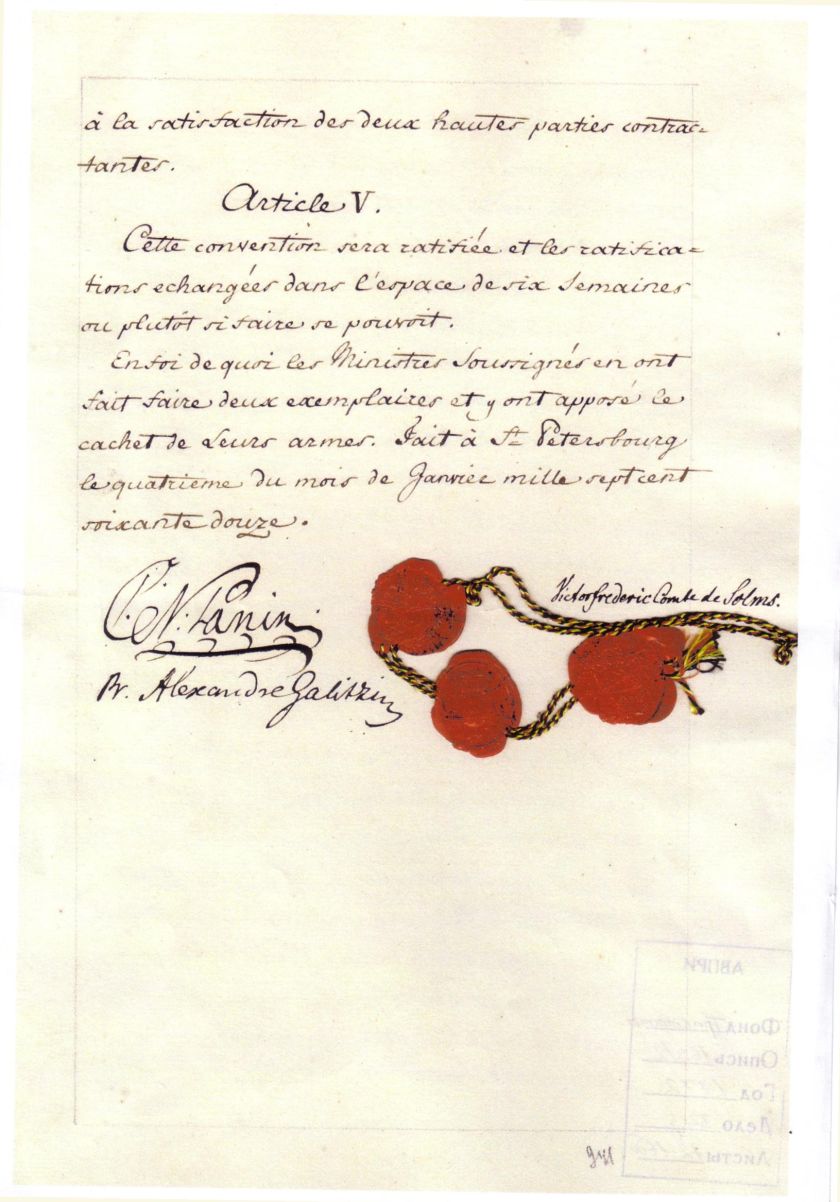 à la satisfaction des deux hautes parties contrac=
tantes.
Article V.
Cette convention sera ratifiée et les ratifica=
tions echangées dans l'espace de six Semaines
ou plutôt si faire se pouvoit.
En foi de quoi les Ministres Soussignés en ont
fait faire deux exemplaires et y ont apposé le
cachet de Leurs armes. Fait à St Petersbourg
le quatrieme du mois de Janvier mille septcent
soixante douze.
C. N. Panin.
Victor frederic Comte de Solms.
Pr. Alexandre Galitzin
АВПРИ
Фонд
Опись
Год
Дело
Листы